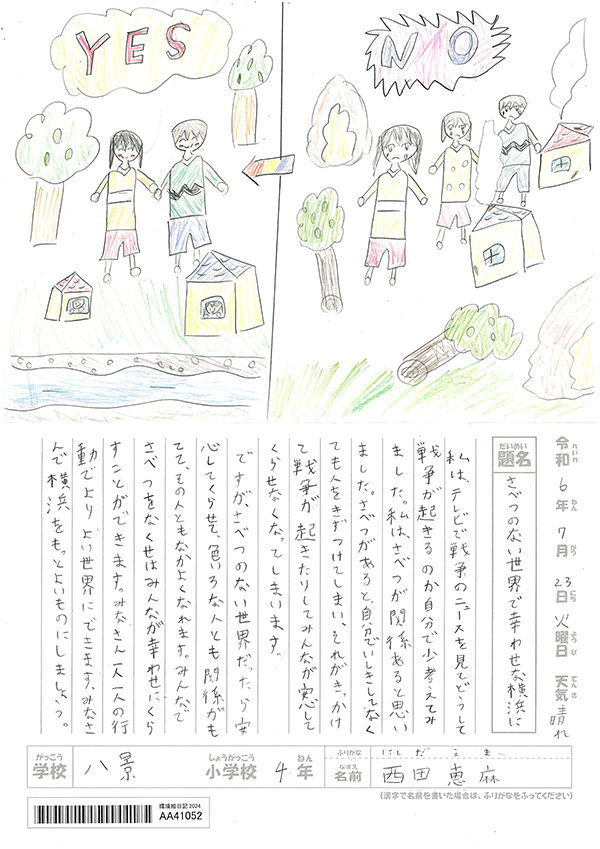 YES
NO
令和6年7月23日火曜日 天気晴れ
れいわ ねん がつ にち ようび てんき
だいめい
題名
さべつのない世界で幸わせな横浜に
私は、テレビで戦争のニュースを見てどうして
戦争が起きるのか自分で少考えてみ
ました。私は、さべつが関係あると思い
ました。さべつがあると、自分でいしきしてなく
ても人をきずつけてしまい、それがきっかけ
で戦争が起きたりしてみんなが安心して
くらせなくなってしまいます。
ですが、さべつのない世界だったら安
心してくらせて、色いろな人とも関係がも
てて、その人ともなかよくなれます。みんなで
さべつをなくせばみんなが幸わせにくら
すことができます。みなさん一人一人の行
動でよりよい世界にできます。みなさ
んで横浜をもっとよいものにしましょう。
がっこう
学校
八景
しょうがっこう
小学校
4
ねん
年
ふりがな
にしだ えま
なまえ
名前
西田 恵麻
(漢字で名前を書いた場合は、ふりがなをふってください)
環境絵日記2024
AA41052